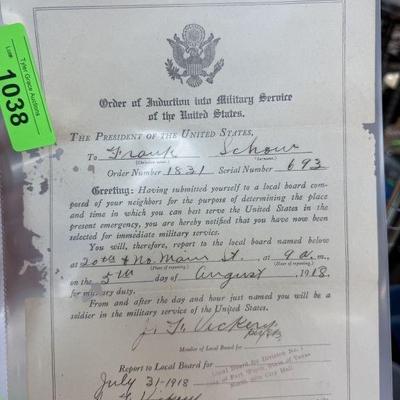 Tyler Grace Auctions
Lot#
1038
Order of Induction into Military Service
of the United States.
THE PRESIDENT OF THE UNITED STATES,
To Frank
(Christian name.)
(Surname.)
Order Number 1831 Serial Number 693
Greeting: Having submitted yourself to a local board com-
posed of your neighbors for the purpose of determining the place
and time in which you can best serve the United States in the
present emergency, you are hereby notified that you have now been
selected for immediate military service.
You will, therefore, report to the local board named below
at 20th & No. Main St. at 9 a. m.,
(Place of reporting.)
(Hour of reporting.)
on the 5th day of August, 1918,
for military duty.
From and after the day and hour just named you will be a
soldier in the military service of the United States.
J. F. Vickery
Member of Local Board for
Report to Local Board for
Local Board for Division No. 1
City of Fort Worth, State of Texas
North Side City Hall
July 31-1918
Vickery